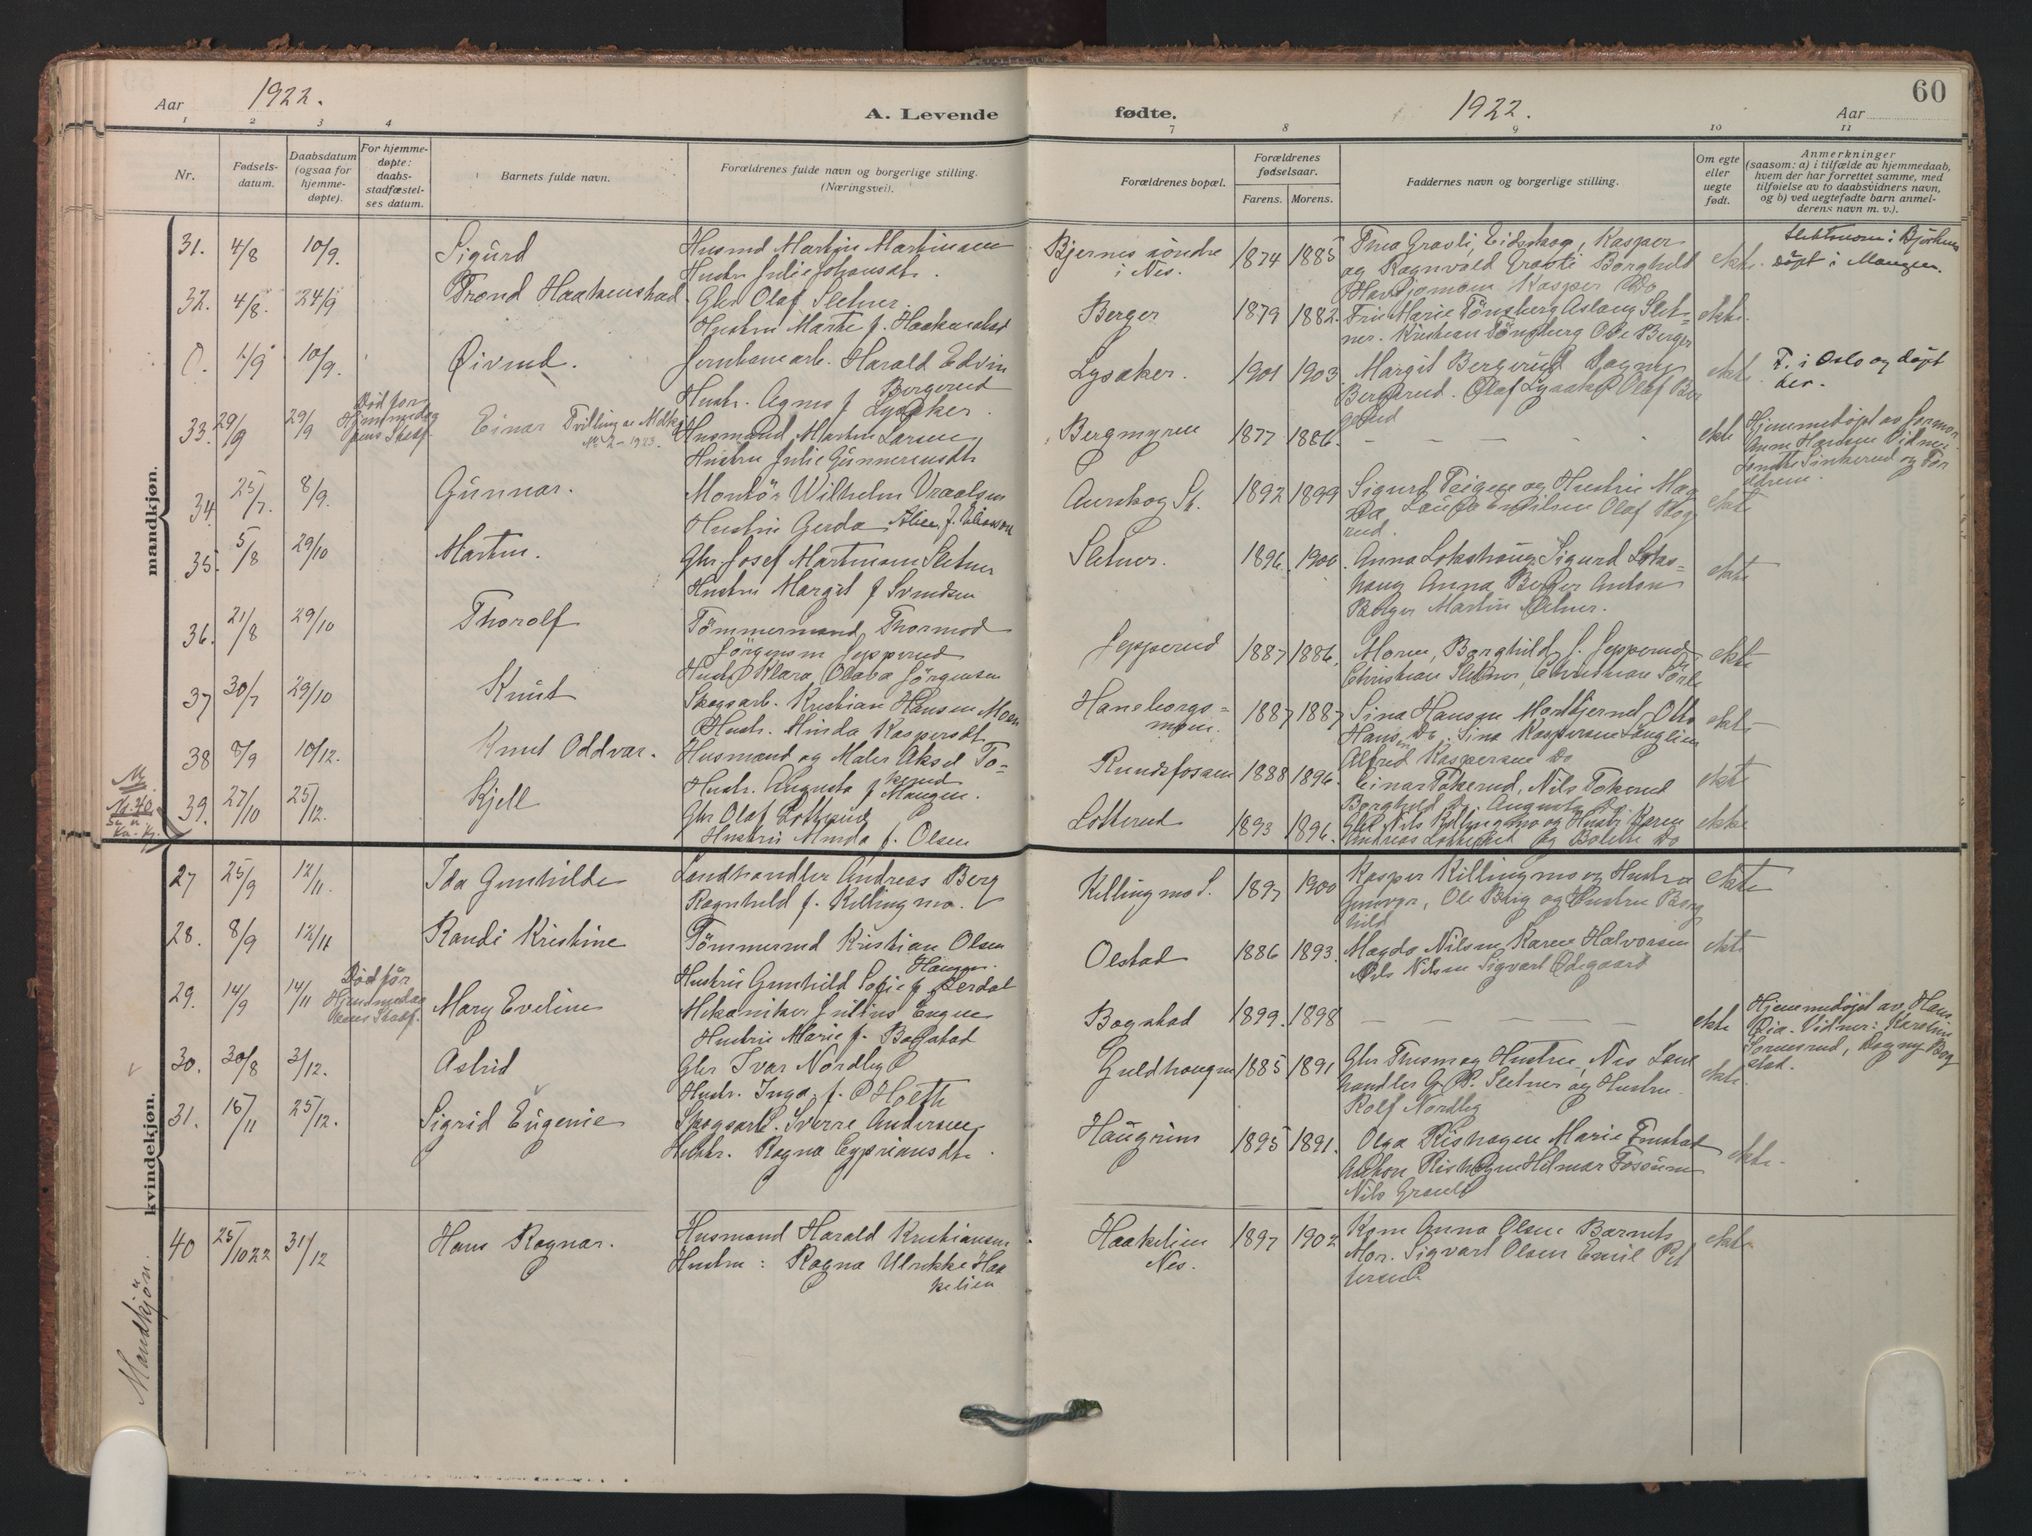 Aar 1922. A. Levende
fødte. 1922. Aar 60
1 2 3 4 7 8 9 10 11
Nr.
Fødsels-
datum.
Daabsdatum
(ogsaa for
hjemme-
døpte).
For hjemme-
døpte:
daabs-
stadfæstel-
ses datum.
Barnets fulde navn.
Forældrenes fulde navn og borgerlige stilling.
(Næringsvei).
Forældrenes bopæl.
Forældrenes
fødselsaar.
Farens. Morens.
Faddernes navn og borgerlige stilling.
Om egte
eller
uegte
født.
Anmerkninger
(saasom: a) i tilfælde av hjemmedaab,
hvem der har forrettet samme, med
tilføielse av to daabsvidners navn,
og b) ved uegtefødte barn anmel-
derens navn m. v.).
mandkjøn.
31. 4/8 10/9. Sigurd
Husmd Martin Martinsen
Hustr. Julie Johansdt.
Bjernes söndre
i Nes.
1874 1885
Thea Gravli, Eidskog, Kasper
og Ragnvald Gravli Borghild
Kasper Do
ekte.
døpt i Mangen.
32. 4/8. 24/9 Trond Haakenstad
Gbr Olaf Sletner.
Hustru Marte f. Haakenstad
Berger
1879 1882.
Fru Marie Tönsberg Aslaug Slet-
ner. Kristian Tönsberg Ole Berger
ekte.
0. 1/9 10/9. Øivind.
Jernbanearb. Harald Edvin
Bergerud
Hustr. Agnes f Lysaker.
Lysaker.
1901 1903.
Margit Bergerud Dagny
Bergerud. Olaf Lysaker Olaf Ber
gerud
ekte.
F. i Oslo og døpt
der.
33. 29/9 29/9
Død før
Einar Tvilling av
No 2-1923.
Husmand Martin Larsen
Hustru Julie Gunnerensdt
Bergmyren
1877 1886.
— — —
ekte
Hjemmedøpt av formor
Anne Hansen Vidner
34. 25/7. 8/9. Gunnar.
Montör Wilhelm Vraalsen
Hustru Gerda
Aurskog St.
1892 1899
Sigurd Teigen og Hustru Mag
da Olaf Skog
rud.
ekte
35. 5/8 29/10 Martin.
Gbr Josef Martinsen Sletner
Hustru Margit f Svendsen
Sletner.
1896. 1900.
Anna Lokshaug Sigurd Loks-
haug Anna Berger Anton
Berger Martin Sletner.
ekte
36. 21/8 29/10 Thorolf
Tömmermand Thormod
Jörgensen Jepperud
Hustr Klara Olaba Jörgensen
Jepperud
1887 1886.
Moren, Borghild J. Jepperud
Christian Sletner, Christian
ekte
37 30/7 29/10 Knut
Skogsarb. Kristian Hansen Moen
Hustr. Minda Kaspersdt
Haneborgs-
moen.
1887 1887
Sina Hansen Mordkjernet Otto
Hansen Do. Sina Kaspersen
Alfred Kaspersen Do
ekte
38 8/9 10/12. Knut Oddvar.
Husmand og Maler Aksel To-
kerud
Hustr. Augusta f Mangen.
Rundsfosen
1888 1896.
Einar Tokerud, Nils Tokerud
Borghild Do. Augusta Do
ekte
39. 27/10 25/12. Kjell
Gbr Olaf Lotterud
Hustru Minda f. Olsen
Lotterud
1893 1896.
Gbr Nils Killingmo og Hustr Karen
Andreas Lotterud og Bolette Do
ekte
M.
Nr. 40
kvindekjøn.
27 25/9 12/11. Ida Gunhilde
Landhandler Andreas Berg
Ragnhild f. Killingmo.
Killingmo S.
1897 1900
Kasper Killingmo og Hustru
Gunvor, Ole Berg og Hustru Borg
hild
ekte
28. 8/9 12/11 Randi Kristine
Tömmermd Kristian Olsen
Haugen.
Hustru Gunhild Sofie f Lerdal
Olstad
1886 1893.
Magda Nilsen Karen Halvorsen
Nils Nilsen Sigvart Ødegaard
ekte
29. 14/9 14/11
Død før
Mary Eveline
Mekaniker Julius Engen
Hustru Marie f. Bogstad
Bogstad
1899. 1898
— — —
ekte
Hjemmedøpt av Hans
Øia. Vidner: Karoline
Sornesrud, Dagny Bog
stad.
30. 30/8 3/12. Astrid
Gbr Ivar Nordby
Hustr. Inga f. Holth
Guldhaugen
1885 1891
Gbr Thusen og Hustru Nes Land
handler G. P. Sletner og Hustru
Rolf Nordby
ekte.
31. 15/11 25/12. Sigrid Eugenie
Skogsarb. Sverre Andersen
Hustr. Ragna Cypriansdt.
Haugrim
1895 1891.
Olga Rishagen Marie Fonstad
Anton Rishagen Helmar Fossum
Nils Granli
ekte.
Mandkjön.
40 25/10 22 31/12 Hans Ragnar.
Husmand Harald Kristiansen
Hustru: Ragna Ulrikke Haa
kelien
Haakelien
Nes.
1897 1902
Kone Anna Olsen Barnets
Mor. Sigvart Olsen Emil Pet
tersen
ekte